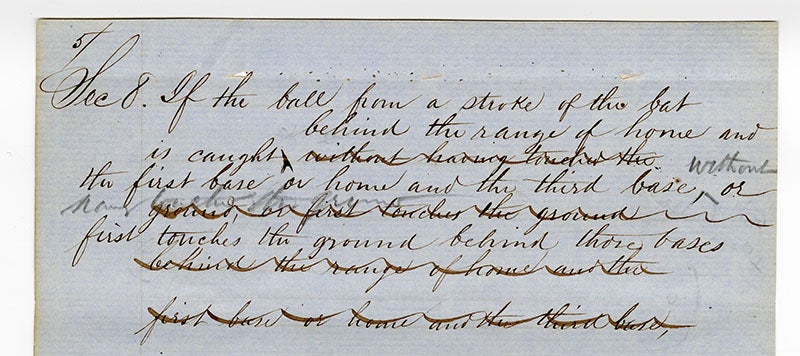 5/
Sec 8. If the ball from a stroke of the bat
behind the range of home and
is caught without having touched the
without
the first base or home and the third base, or
having touched the ground
ground, or first touches the ground
first touches the ground behind those bases
behind the range of home and the
first base or home and the third base,